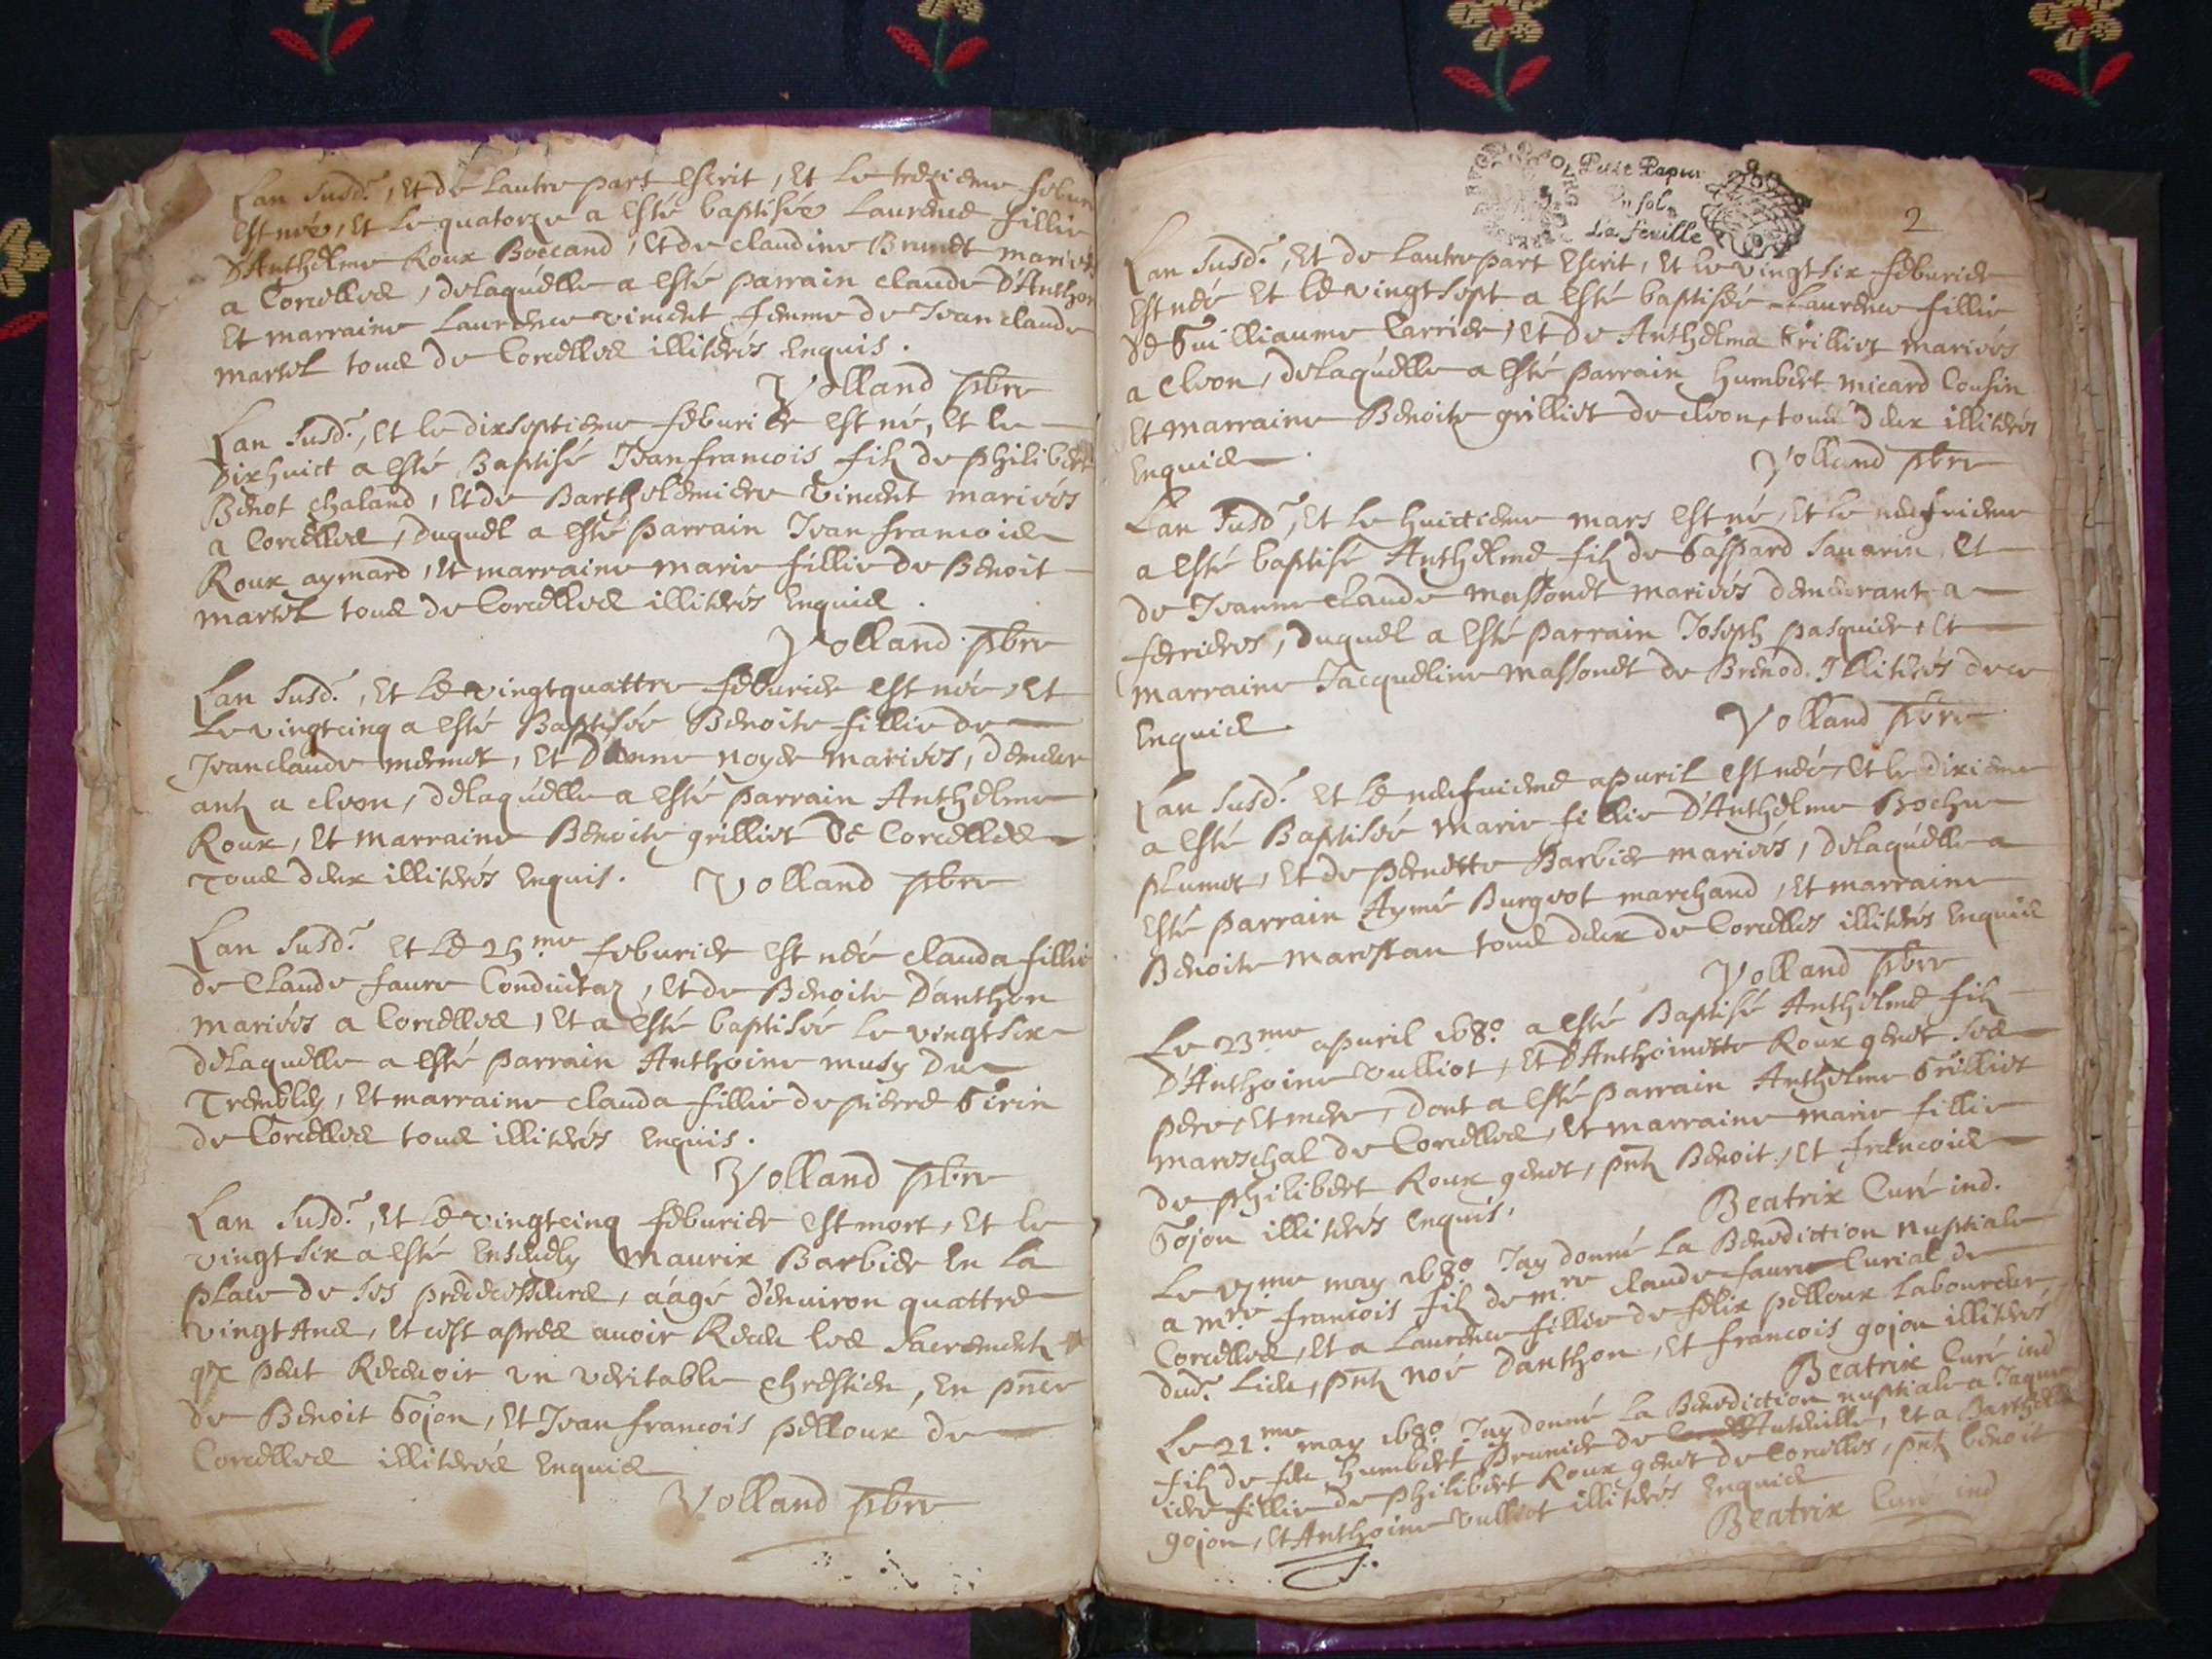 Lan susd.t, et de lautre part escrit, et le trezieme febur
est née, et le quatorze a esté baptisée Laurence fillie
d'Anthelme Roux Boccand, et de claudine Brunet mariés
a Corcelles, delaquelle a esté parrain claude D'Anthon
et marraine Laurence vincent femme de Jean claude
martel tous de Corcelles illiterés enquis.
Volland pbre
Lan susd.t, et le dixseptieme feburier est né, et le
dixhuict a esté Baptisé Jean francois filz de philibert
Benot chaland, et de Barthelemiere vincent mariés
a Corcelles, duquel a esté parrain Jean francois
Roux aymard, et marraine marie fillie de Benoit
martel tous de Corcelles illiterés enquis.
Volland pbre
Lan susd.t, et le vingtquattre feburier est née, et
le vingtcinq a esté Baptisée Benoite fillie de
Jeanclaude mermet, et D'anne noyer mariés, demeur
antz a cleon, delaquelle a esté parrain Anthelme
Roux, et marraine Benoite grilliet de Corcelles
tous deux illiterés enquis. Volland pbre
Lan susd.t et le 25.me feburier est née clauda fillie
de Claude faure Conduitaz, et de Benoite D'anthon
mariés a Corcelles, et a esté baptisée le vingt six
delaquelle a esté parrain Anthoine musy du
Trembley, et marraine clauda fillie de pierre Girin
de Corcelles tous illiterés enquis.
Volland pbre
Lan susd.t, et le vingtcinq feburier est mort, et le
vingt six a esté ensevely Maurix Barbier en la
place de ses predecesseurs, aagé d'environ quattre
vingt ans, et cest apres avoir Receu les sacrementz
q~ peut Recevoir un veritable chrestien, en pnce
de Benoit Gojon, et Jean francois pelloux de
Corcelles illiterés enquis
Volland pbre
Petit Papier
in fol.
La feuille
2
Lan susd.t, et de lautre part escrit, et le vingt six feburier
est née et le vingt sept a esté baptisée Laurence fillie
de Guilliaume Carrier, et de Anthelma Grilliet mariés
a cleon, delaquelle a esté parrain humbert micard Cousin
et marraine Benoite grilliet de cleon, tous deux illiterés
enquis.
Volland pbre
Lan susd.t, et le huictieme mars est né, et le neufvieme
a esté baptisé Anthelme filz de Gaspard Savarin, et
de Jeanne claude massonet mariés demeurant a
ferrieres, duquel a esté parrain Joseph pasquier, et
marraine Jacqueline massonet de Brenod. Illiterés de ce
enquis
Volland pbre
Lan susd.t et le neufvieme apvril est née, et le dixieme
a esté Baptisée marie fillie D'Anthelme Boche
plumet, et de pernette Barbier mariés, delaquelle a
esté parrain Aymé Burgeot marchand, et marraine
Benoite marestan tous deux de Corcelles illiterés enquis
Volland pbre
Le 23.me apvril 1680 a esté Baptisé Anthelme filz
D'Anthoine vulliot, et D'Anthoinette Roux genet ses
pere, et mere, dont a esté parrain Anthelme Grilliet
mareschal de Corcelles, et marraine marie fillie
de philibert Roux genet, pntz Benoit, et francois
Gojon illiterés enquis,
Beatrix Curé ind.
Le 7.me may 1680 Jay donné la Benediction nuptiale
a m.re francois filz de m.re claude faure Curial de
Corcelles, et a Laurence fillie de felix pelloux laboureur
dud.t lieu, pntz noé danthon, et francois gojon illiterés
Beatrix Curé ind
Le 21.me may 1680 Jay donné la Benediction nuptiale a Jaque
filz de feu humbert Brunier de Anteville, et a Barthelem
iere fillie de philibert Roux genet de Corcelles, pntz benoit
gojon, et Anthoine vulliot illiterés enquis
Beatrix Curé ind